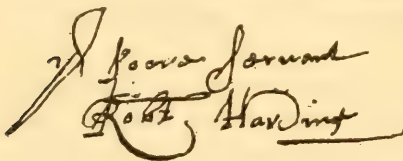 yr Poore Servant
Robt Harding